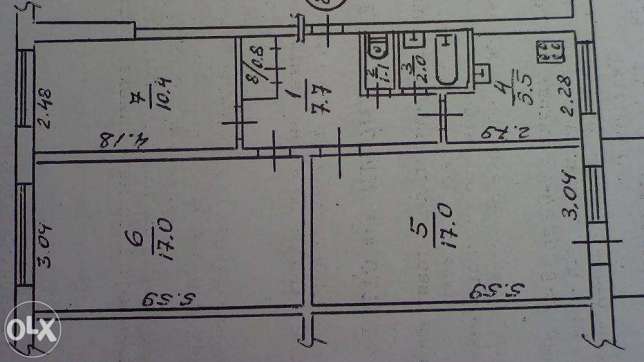 2.48
7
10.4
4.18
8/0.8
1
7.7
2
1.1
3
2.0
4
5.5
2.28
2.79
3.04
6
17.0
5.59
5
17.0
3,04
5.59
OLX